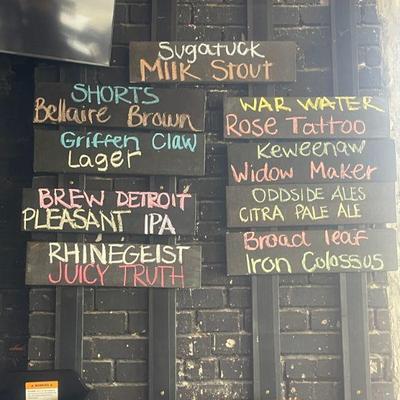 Sugatuck
Milk Stout
SHORTS
Bellaire Brown
Griffen Claw
Lager
BREW DETROIT
PLEASANT IPA
RHINEGEIST
JUICY TRUTH
WAR WATER
Rose Tattoo
Keweenaw
Widow Maker
ODDSIDE ALES
CITRA PALE ALE
Broad leaf
Iron Colossus
WARNING